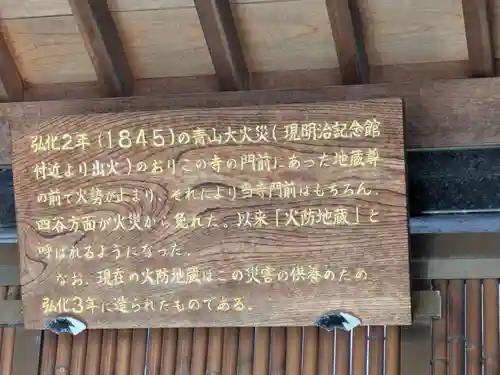 弘化2年(1845)の青山大火災(現明治記念館
付近より出火)のおりこの寺の門前にあった地蔵尊
の前で火勢が止まり、それにより当寺門前はもちろん、
四谷方面が火災から免れた。以来「火防地蔵」と
呼ばれるようになった。
なお、現在の火防地蔵はこの災害の供養のため
弘化3年に造られたものである。